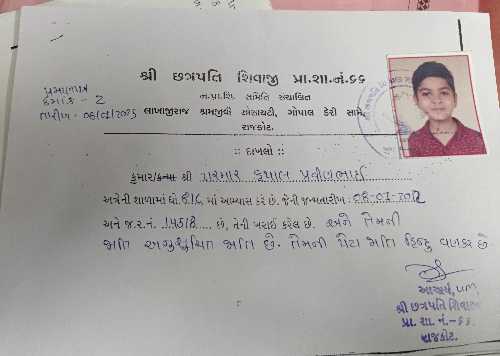 શ્રી છત્રપતિ શિવાજી પ્રા.શા.નં.૬૬
ન.પ્રા.શિ. સમિતિ સંચાલિત
પ્રમાણપત્ર
ક્રમાંક - 2
તારીખ - 06/01/2025
લાખાજીરાજ શ્રમજીવી સોસાયટી, ગોપાલ ડેરી સામે,
રાજકોટ.
:: દાખલો ::
કુમાર/કન્યા શ્રી પરમાર કૃપાલ પ્રવીણભાઈ
અત્રેની શાળામાં ધો. 8/C માં અભ્યાસ કરે છે. જેની જન્મતારીખ : 08-07-2012
અને જી.ર.નં. 14518 છે, તેની ખરાઈ કરેલ છે. અને તેમની
જાતિ અનુસૂચિત જાતિ છે. તેમની પેટા જાતિ હિન્દુ વણકર છે.
આચાર્ય,
શ્રી છત્રપતિ શિવાજી
પ્રા. શા. નં.-૬૬
રાજકોટ.